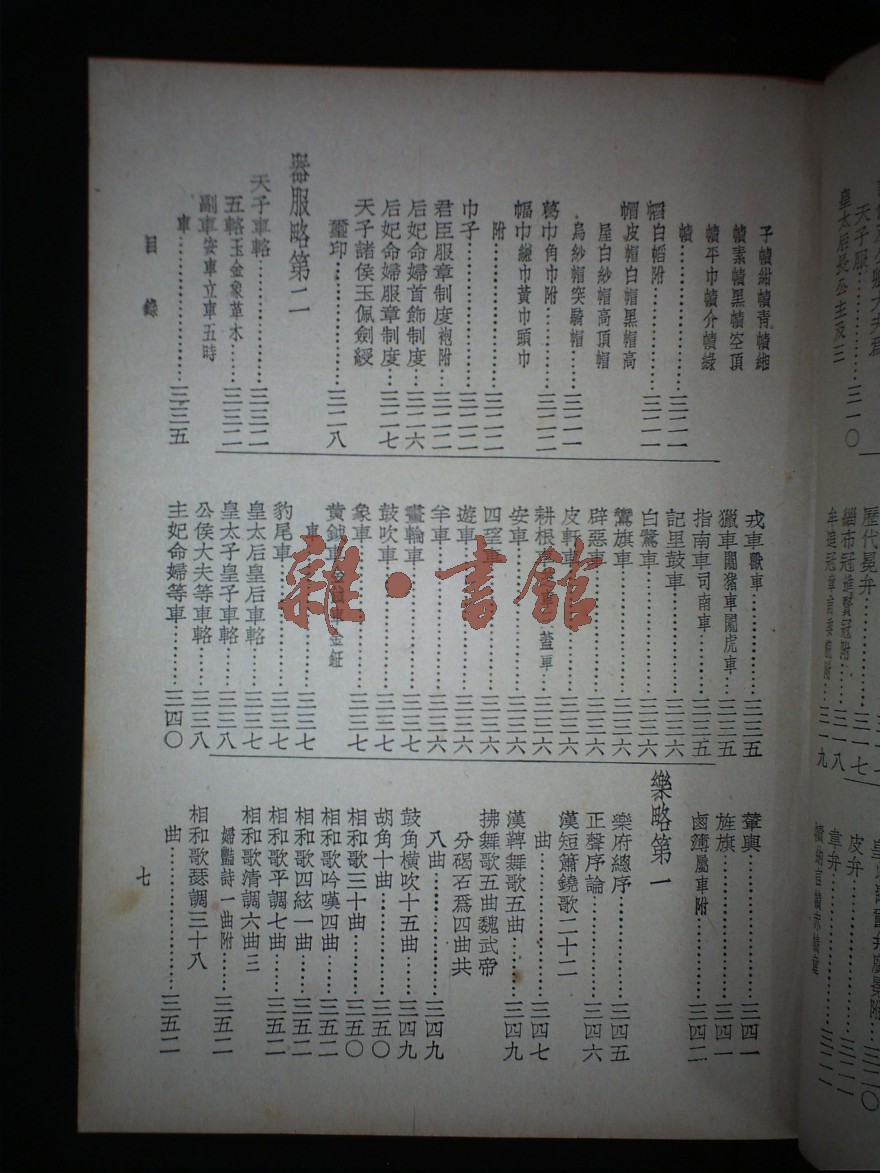 子幘紺幘青幘緗
幘素幘黑幘空頂
幘平巾幘介幘綠
幘⋯⋯⋯⋯三二一
帽白帽附⋯⋯⋯⋯三二一
帽皮帽白帽黑帽高
屋白紗帽高頂帽
烏紗帽突騎帽⋯⋯三二一
葛巾角巾附⋯⋯⋯⋯三二二
幅巾縑巾黃巾頭巾
附⋯⋯⋯⋯三二二
巾子⋯⋯⋯⋯三二二
君臣服章制度袍附⋯⋯三二二
后妃命婦首飾制度⋯⋯三二六
后妃命婦服章制度⋯⋯三二七
天子諸侯玉佩劍綬
璽印⋯⋯⋯⋯三二八
器服略第二
天子車輅⋯⋯⋯⋯三三二
五輅玉金象革木⋯⋯三三二
副車安車立車五時
車⋯⋯⋯⋯三三五
戎車獸車⋯⋯⋯⋯三三五
獵車闟猪車闟虎車⋯⋯三三五
指南車司南車⋯⋯⋯⋯三三五
記里鼓車⋯⋯⋯⋯三三六
白鷺車⋯⋯⋯⋯三三六
鸞旗車⋯⋯⋯⋯三三六
辟惡車⋯⋯⋯⋯三三六
皮軒車⋯⋯⋯⋯三三六
耕根車 蓋車⋯⋯三三六
安車⋯⋯⋯⋯三三六
四望車⋯⋯⋯⋯三三六
遊車⋯⋯⋯⋯三三六
羊車⋯⋯⋯⋯三三六
畫輪車⋯⋯⋯⋯三三七
鼓吹車⋯⋯⋯⋯三三七
象車⋯⋯⋯⋯三三七
黃鉞車金鉦車金鉦
車⋯⋯⋯⋯三三七
豹尾車⋯⋯⋯⋯三三七
皇太后皇后車輅⋯⋯三三七
皇太子皇子車輅⋯⋯三三八
公侯大夫等車輅⋯⋯三三八
主妃命婦等車⋯⋯三四〇
輦輿⋯⋯⋯⋯三四一
旌旗⋯⋯⋯⋯三四一
鹵簿屬車附⋯⋯⋯⋯三四二
樂略第一
樂府總序⋯⋯⋯⋯三四五
正聲序論⋯⋯⋯⋯三四六
漢短簫鐃歌二十二
曲⋯⋯⋯⋯三四七
漢鞞舞歌五曲⋯⋯三四九
拂舞歌五曲魏武帝
分碣石爲四曲共
八曲⋯⋯⋯⋯三四九
鼓角橫吹十五曲⋯⋯三四九
胡角十曲⋯⋯⋯⋯三五〇
相和歌三十曲⋯⋯三五〇
相和歌吟嘆四曲⋯⋯三五二
相和歌四絃一曲⋯⋯三五二
相和歌平調七曲⋯⋯三五二
相和歌清調六曲三
婦豔詩一曲附⋯⋯三五二
相和歌瑟調三十八
曲⋯⋯⋯⋯三五二
目錄
七
雜·書館
皇太后長公主及三
天子服⋯⋯三一〇
歷代冕弁⋯⋯三一七
緇布冠進賢冠附⋯⋯三一八
皮弁⋯⋯三二一
韋弁⋯⋯三二一